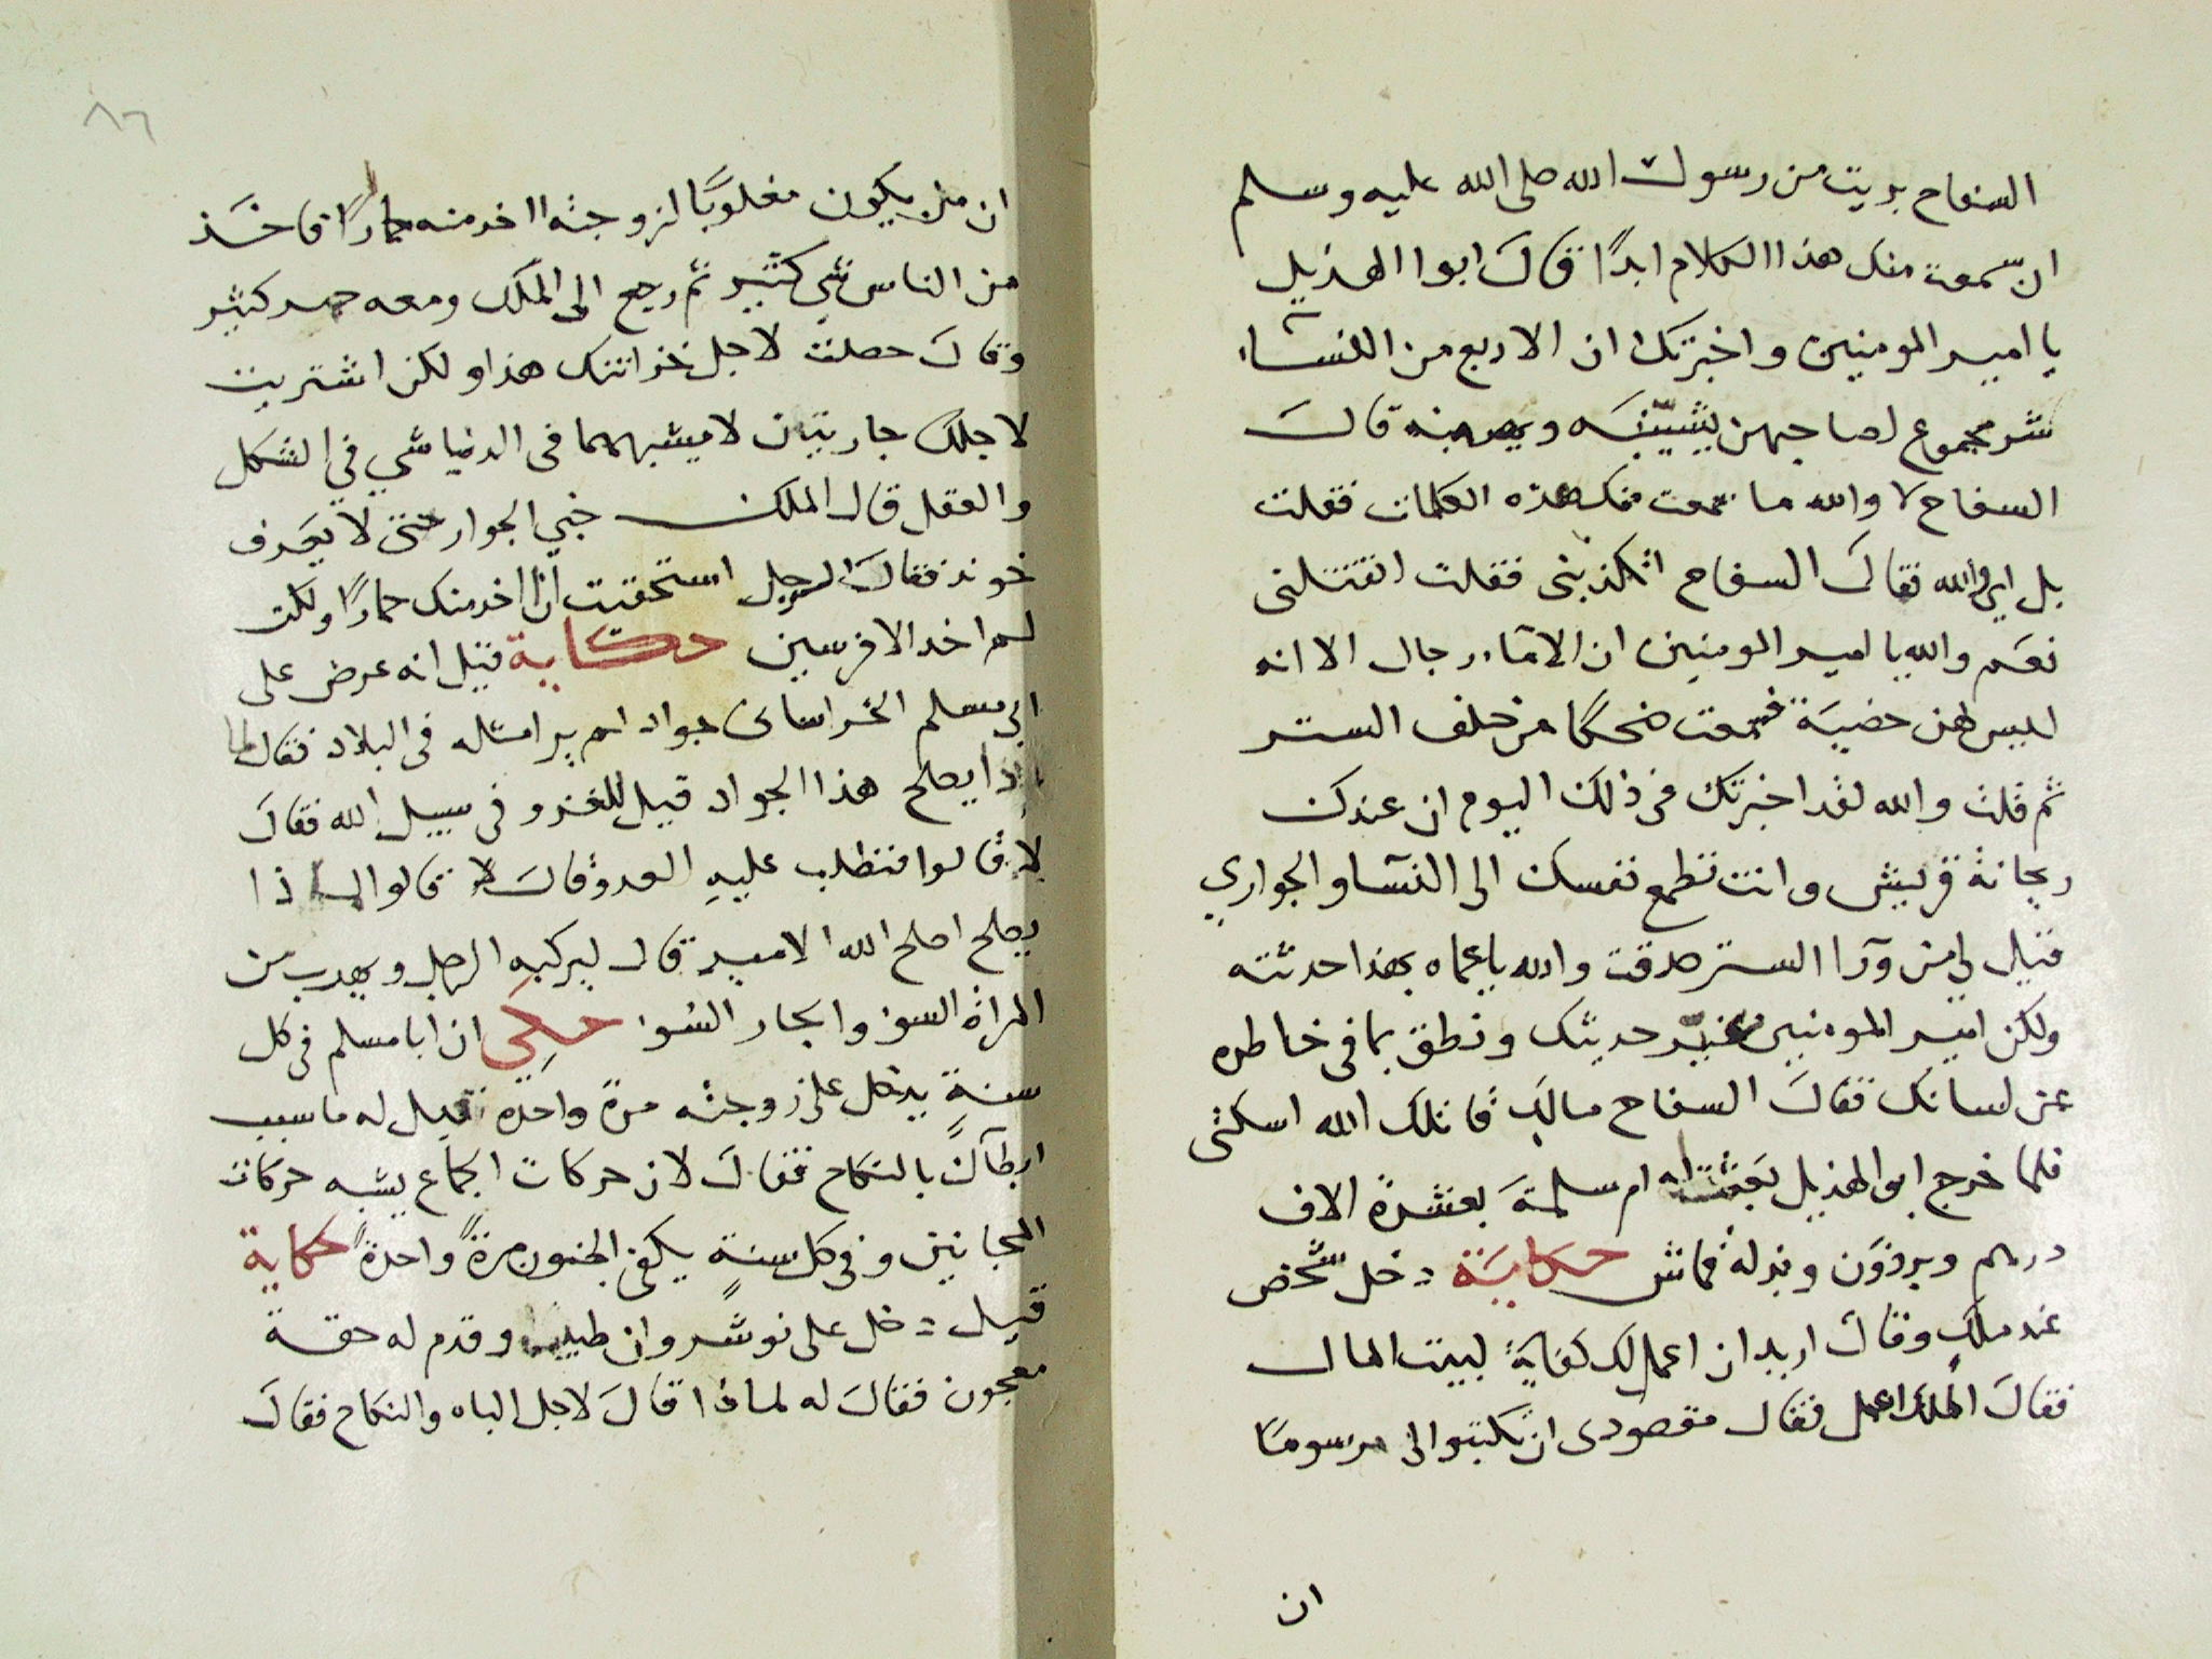 السفاح بريت من رسول الله صلى الله عليه وسلم
ان سمعت منك هذا الكلام ابدًا قال ابوا الهذيل
يا امير المومنين واخبرتك ان الاربع من النسآء
شر مجموع لصاحبهن يشيّبنَه ويهرمنه قال
السفاح لا والله ما سمعت منك هذه الكلمات فقلت
بل اي والله فقال السفاح اتكذبني فقلت اتقتلني
نعم والله يا امير المومنين ان الامآء رجال الا انه
ليس لهن خصية فسمعت ضحكًا من خلف الستر
ثم قلت والله لقد اخبرتك في ذلك اليوم ان عندك
ريحانة قريش وانت تطمع نفسك الى النسآ والجواري
فقيل لي من ورآ الستر صدقت والله يا عماه بهذا حدثته
ولكن امير المومنين غيّر حديثك ونطق بما في خاطره
عن لسانك فقال السفاح مالك قاتلك الله اسكتي
فلما خرج ابو الهذيل بعثت له ام سلمة بعشرة الاف
درهم وبرذون وبدلة قماش حكاية دخل شخص
عند ملك وقال اريد ان اعمل لك كفاية لبيت المال
فقال الملك اعمل فقال مقصودى ان تكتبوا لي مرسومًا
ان
٨٦
ان من يكون مغلوبًا لزوجته اخد منه حمارًا فاخذ
من الناس شي كثير ثم رجع الى الملك ومعه حمر كثير
وقال حصلت لاجل خزانتك هذا ولكن اشتريت
لاجلك جاريتان لا يشبههما في الدنيا شي في الشكل
والعقل قال الملك خبي الجوار حتى لا يعرف
خوند فقال الرجل استحقيت ان اخد منك حمارًا ولكن
لم اخد الا فرسين حكاية قيل انه عرض على
ابي مسلم الخراسانى جواد لم ير امثله في البلاد فقال لما
ذا يصلح هذا الجواد قيل للغزو في سبيل الله فقال
لا قالوا فنطلب عليه العدو قال لا قالوا لماذا
يصلح اصلح الله الامير قال ليركبه الرجل ويهرب من
المراة السوء والجار السوء حكي ان ابا مسلم في كل
سنةٍ يدخل على زوجته مرة واحدة فقيل له ما سبب
ابطآك بالنكاح فقال لان حركات الجماع يشبه حركات
المجانين وفي كل سنةٍ يكفى الجنون مرةً واحدةً حكاية
قيل دخل على نوشروان طبيب وقدم له حقة
معجون فقال له لماذا قال لاجل الباه والنكاح فقال